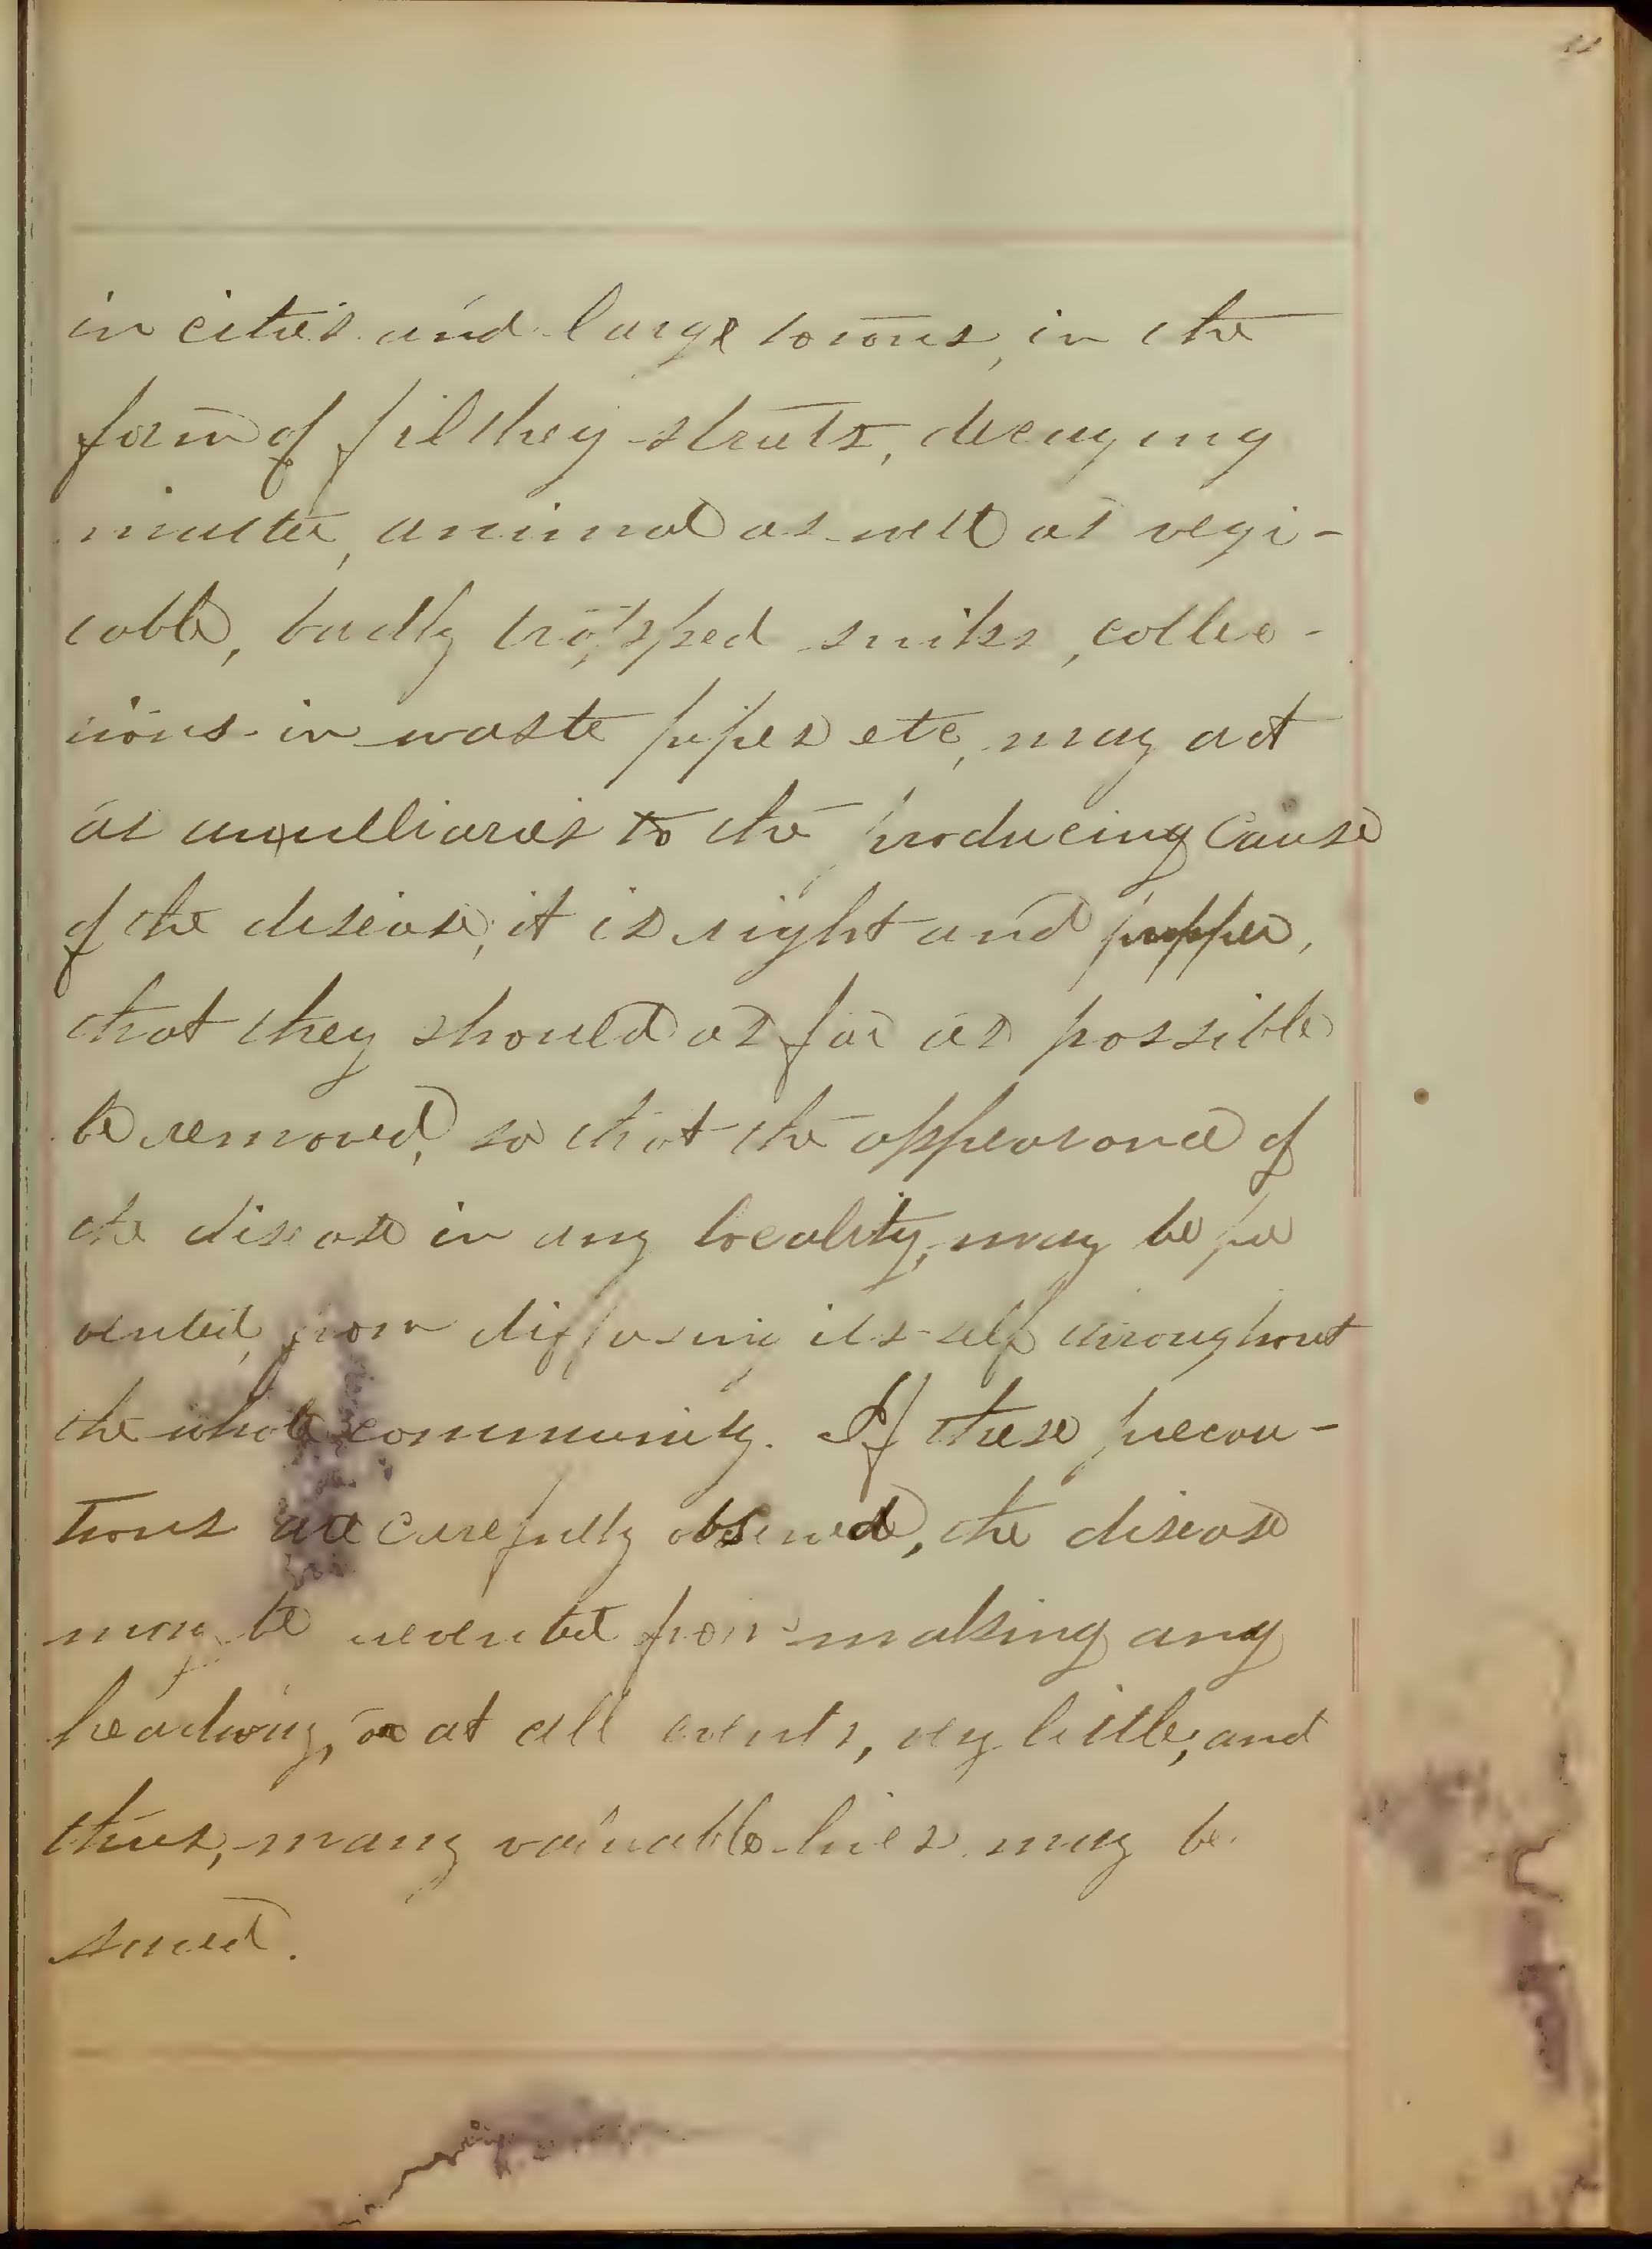 in cities and large towns, in the
form of filthey streets, decaying
matter, animal as well as vegi-
table, badly trapped sinks, collec-
tions in waste pipes etc, may act
as auxilliaries to the producing cause
of the disease; it is right and propper,
that they should as far as possible
be removed, so that the appearance of
the disease in any locality, may be pre
vented, from diffusing its-self throughout
the whole community. If these precau-
tions are carefully observed, the disease
may be prevented from making any
headway, or at all events, very little, and
thus, many valuable lives may be
saved.